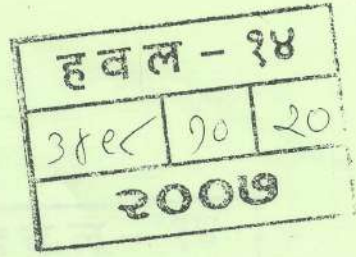 हवल - १४
३४९८ १० २०
२००७